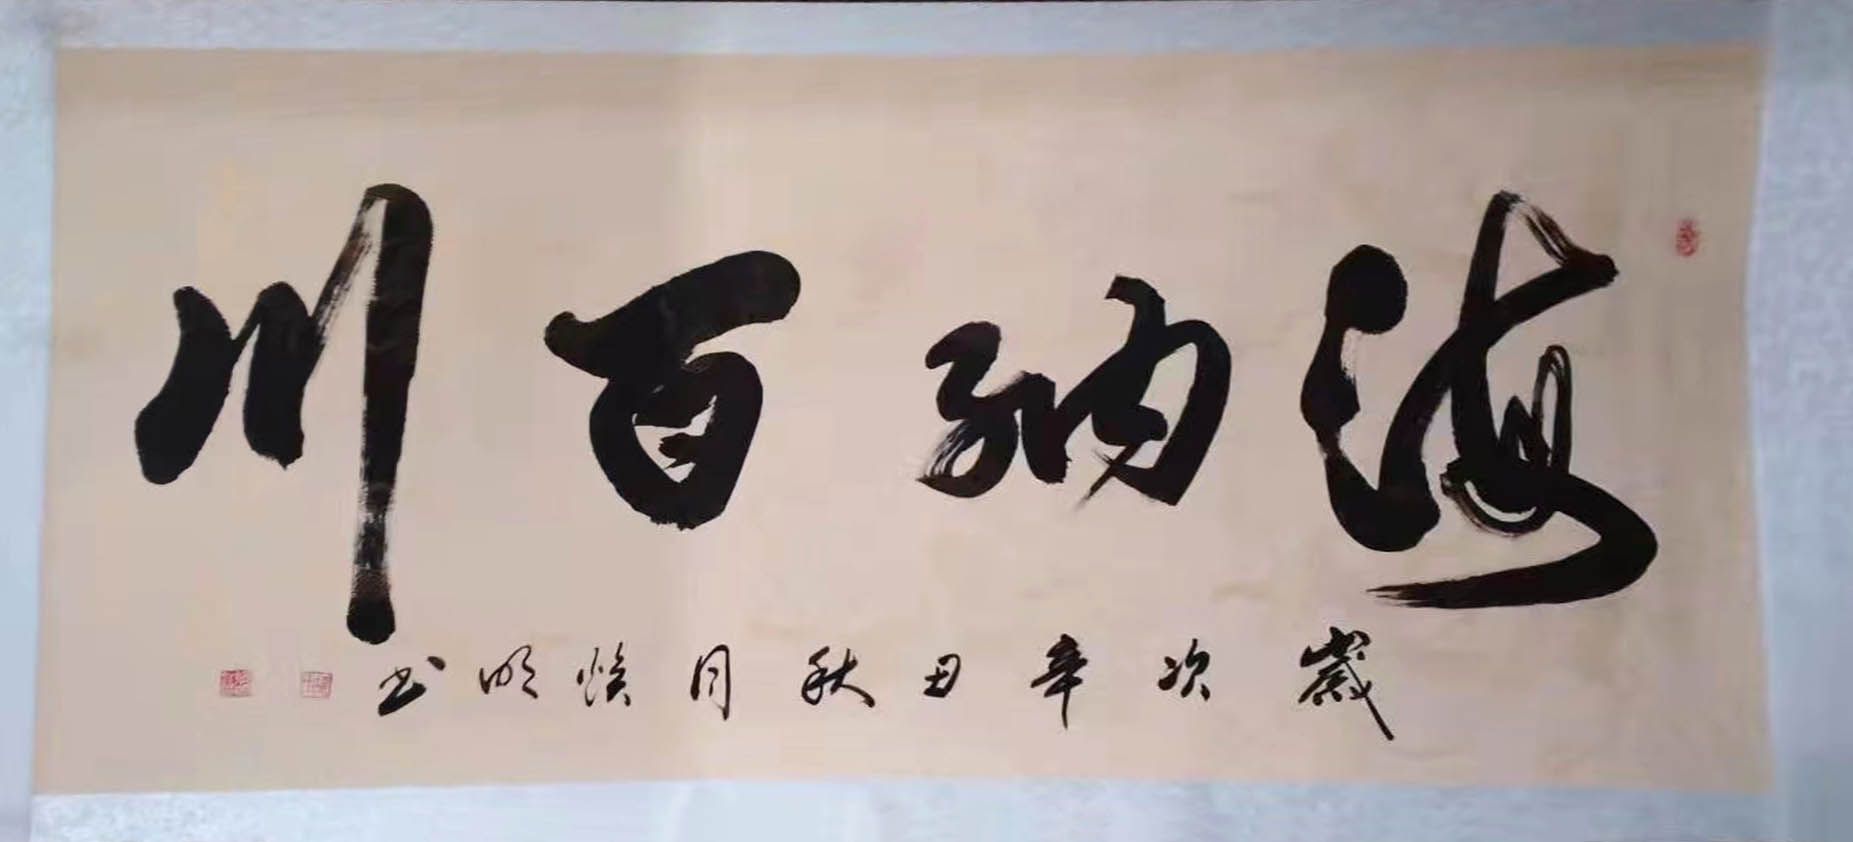 海纳百川
歲次辛丑秋月焕明书